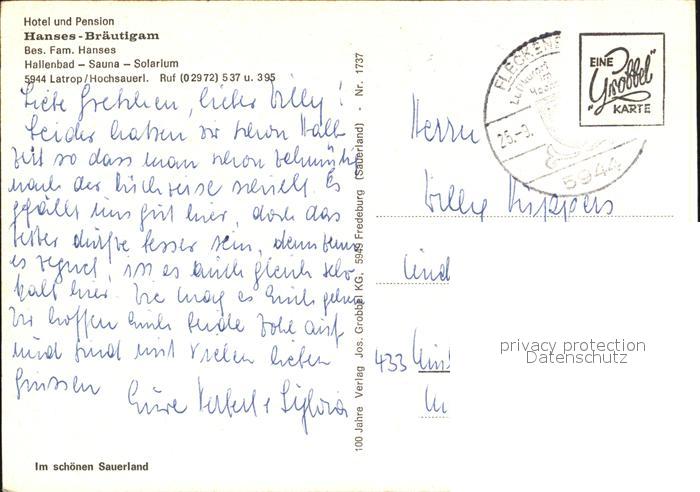 Hotel und Pension
Hanses-Bräutigam
Bes. Fam. Hanses
Hallenbad – Sauna – Solarium
5944 Latrop/Hochsauerl. Ruf (0 29 72) 5 37 u. 3 95
Liebe Gretchen, lieber Willy!
Leider haben wir schon Halb-
zeit so dass man schon
nach der Rückreise schielt. Es
gefällt uns gut hier, doch das
Wetter dürfte besser sein, denn wenn
es regnet, ist es auch gleich sehr
kalt hier. Wie mag es Euch gehen
Wir hoffen Euch beide wohl auf
und sind mit vielen lieben
Grüssen
Eure Herbert + Sylvia
Im schönen Sauerland
100 Jahre Verlag Jos. Grobbel KG, 5949 Fredeburg (Sauerland) - Nr. 1737
FLECKENB
Luftkurort
26.-9.
5944
EINE
"Grobbel"
KARTE
Herrn
Willy Küppers
433
privacy protection
Datenschutz